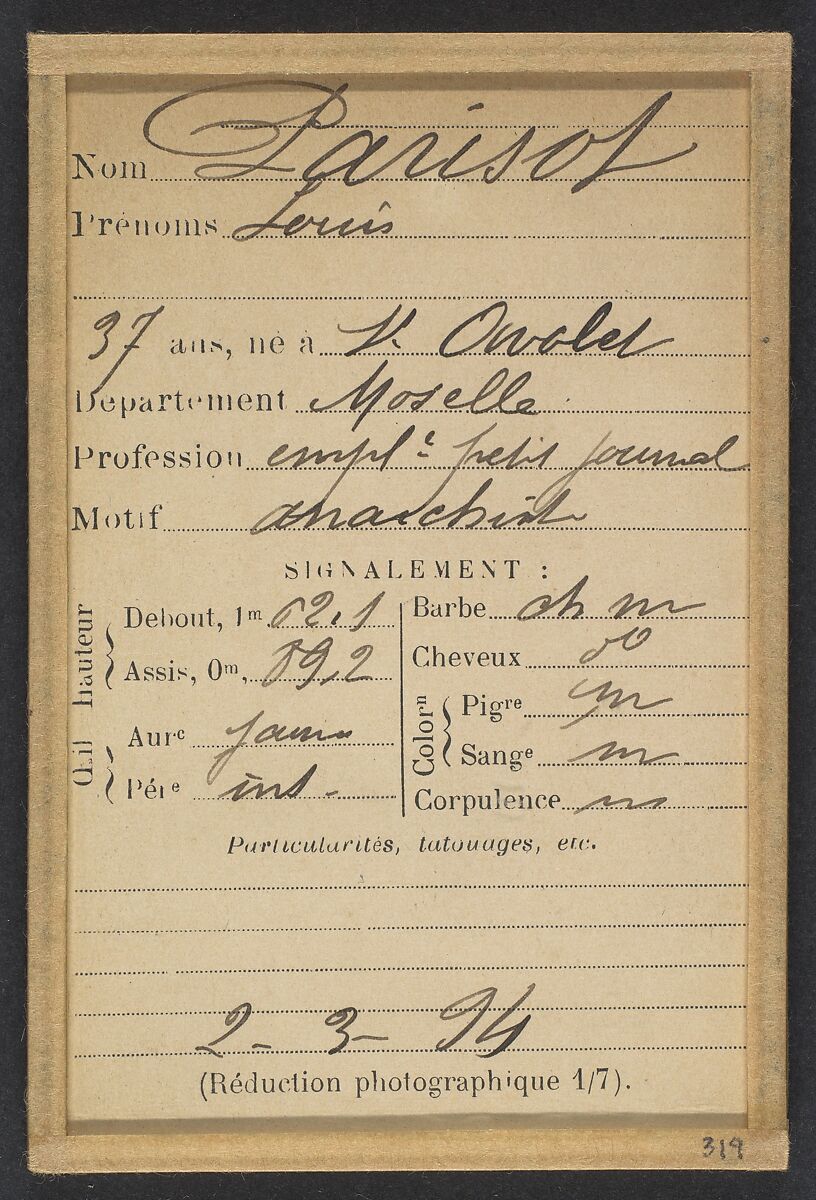 Nom Parisot
Prénoms Louis
37 ans, né à St Avolet
Département Moselle
Profession empl é petit journal
Motif anarchiste
SIGNALEMENT :
hauteur
Debout, 1m, 62.1
Assis, 0m, 89,2
Œil
Aurc jaune
Pére int.
Barbe ch m
Cheveux do
Colorn
Pigre m
Sange m
Corpulence m
Particularités, tatouages, etc.
2-3-94
(Réduction photographique 1/7).
319